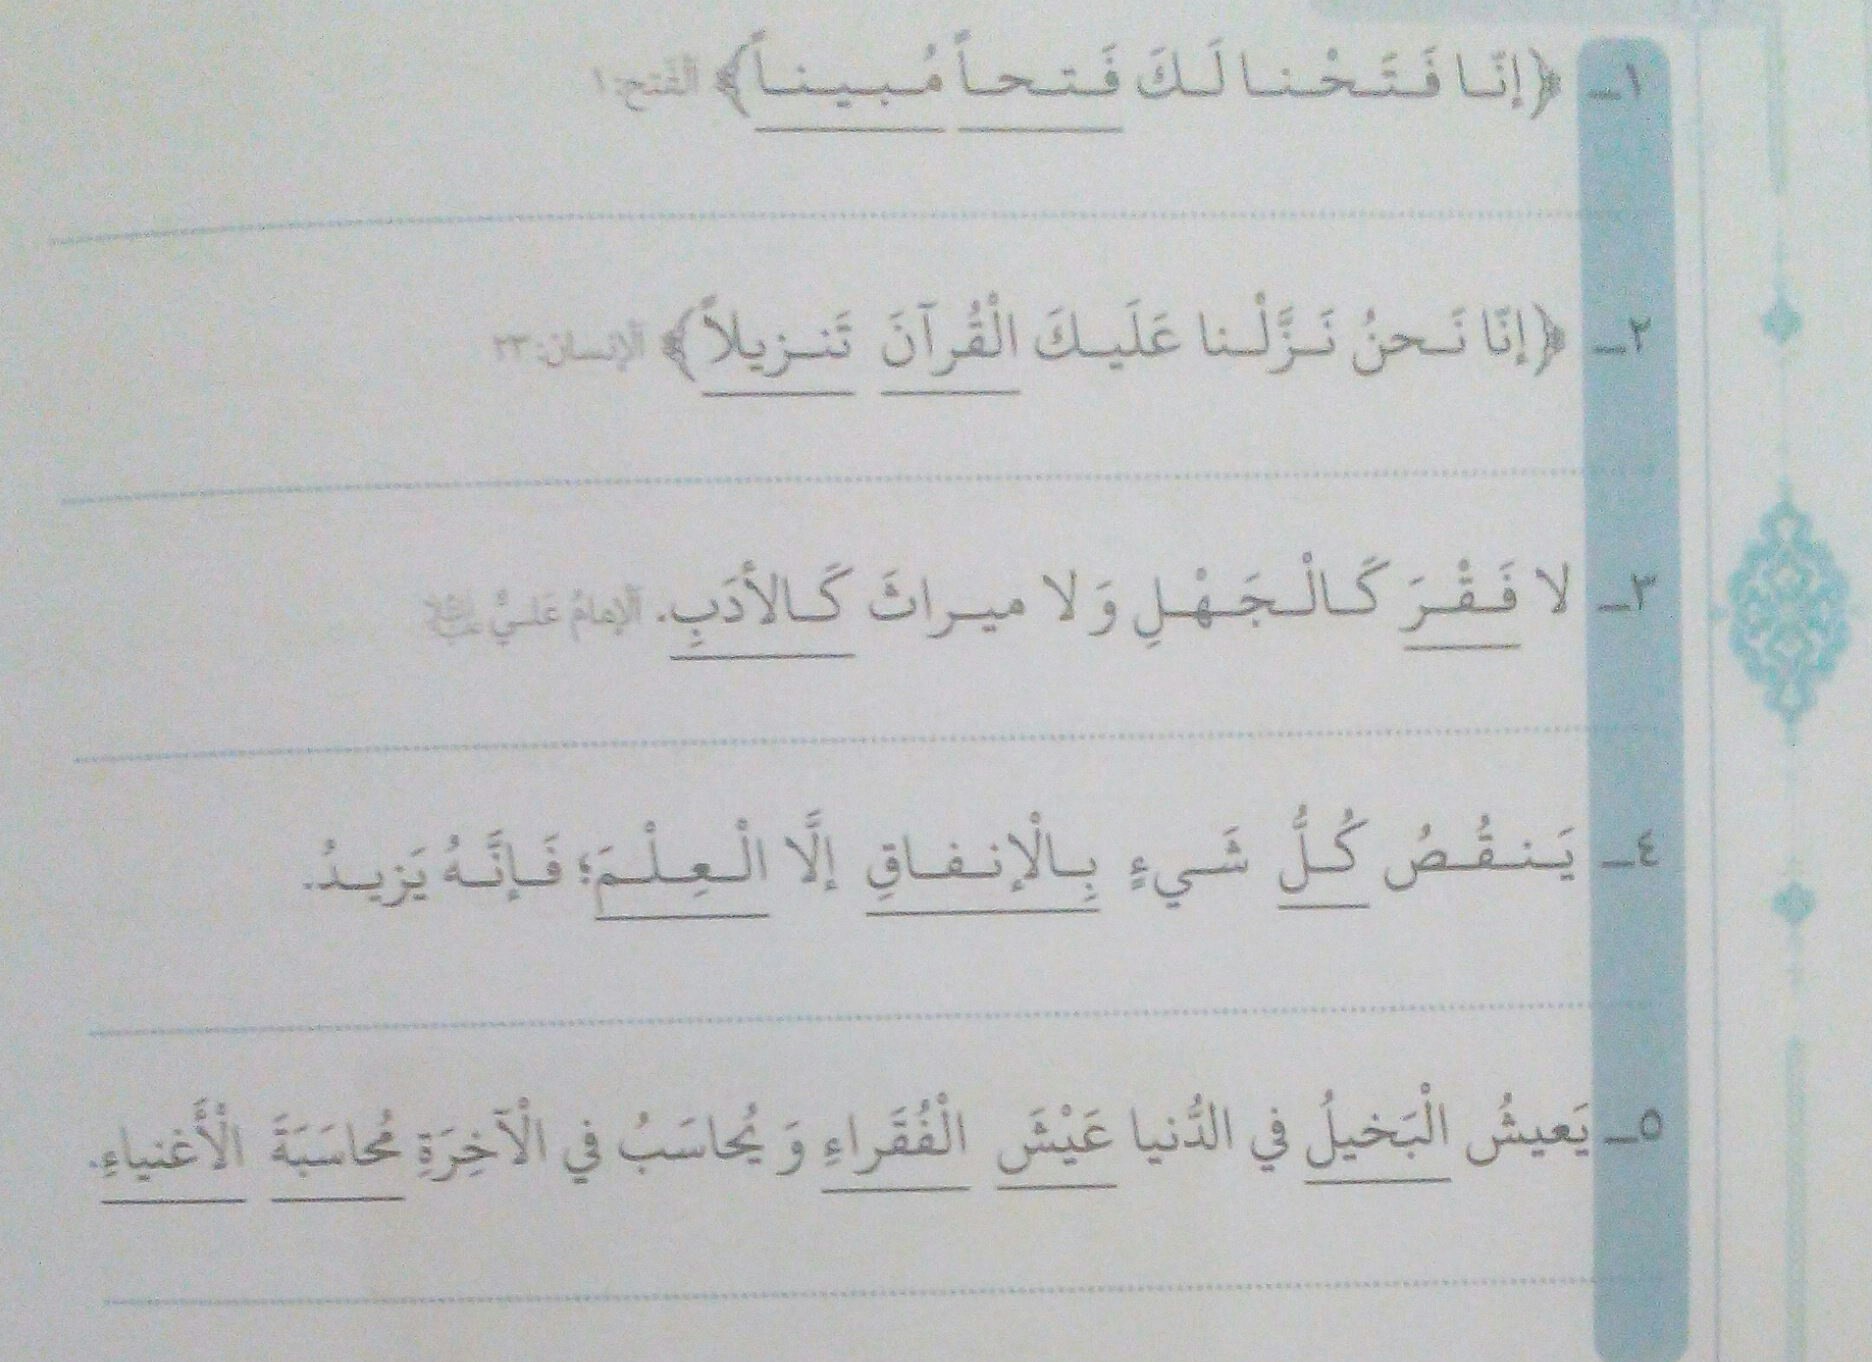 ١ـ ﴿إنَّا فَتَحْنا لَكَ فَتحاً مُبيناً﴾ اَلْفَتح: ١
٢ـ ﴿إنَّا نَحنُ نَزَّلْنا عَلَيكَ الْقُرآنَ تَنزيلاً﴾ اَلْإنسان: ٢٣
٣ـ لا فَقْرَ كَالْجَهْلِ وَ لا ميراثَ كَالأَدَبِ. اَلْإمامُ عَليٌّ
٤ـ يَنقُصُ كُلُّ شَيءٍ بِالْإنفاقِ إلَّا الْعِلْمَ؛ فَإنَّهُ يَزيدُ.
٥ـ يَعيشُ الْبَخيلُ في الدُّنيا عَيْشَ الْفُقَراءِ وَ يُحاسَبُ في الْآخِرَةِ مُحاسَبَةَ الْأَغنياءِ.